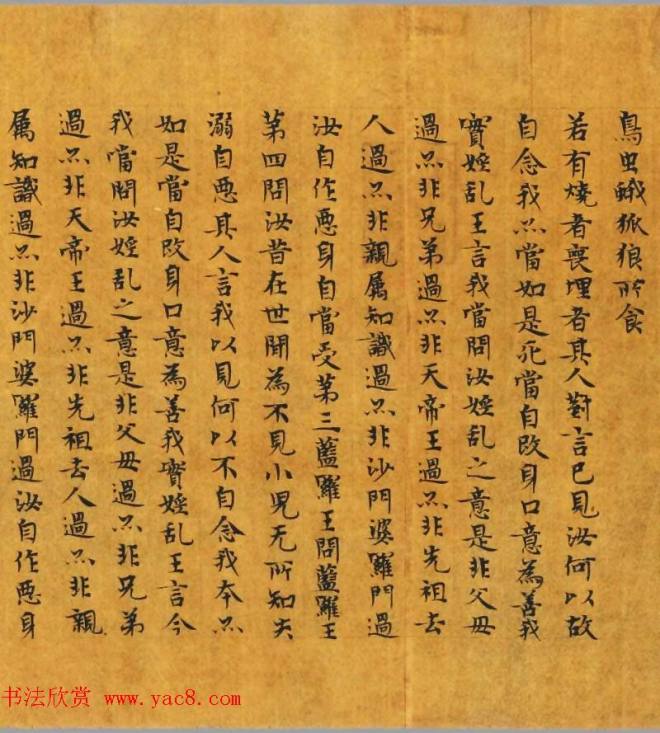 鳥虫蛾狐狼所食
若有燒者喪埋者其人對言已見汝何以故
自念我亦當如是死當自改身口意為善我
實婬乱王言我當問汝婬乱之意是非父毋
過亦非兄弟過亦非天帝王過亦非先祖去
人過亦非親属知識過亦非沙門婆羅門過
汝自作惡身自當受第三藍羅王問藍羅王
第四問汝昔在世間為不見小兒无所知夫
溺自惡其人言我以見何以不自念我本亦
如是當自改身口意為善我實婬乱王言今
我當問汝婬乱之意是非父毋過亦非兄弟
過亦非天帝王過亦非先祖去人過亦非親
属知識過亦非沙門婆羅門過汝自作惡身
书法欣赏 www.yac8.com